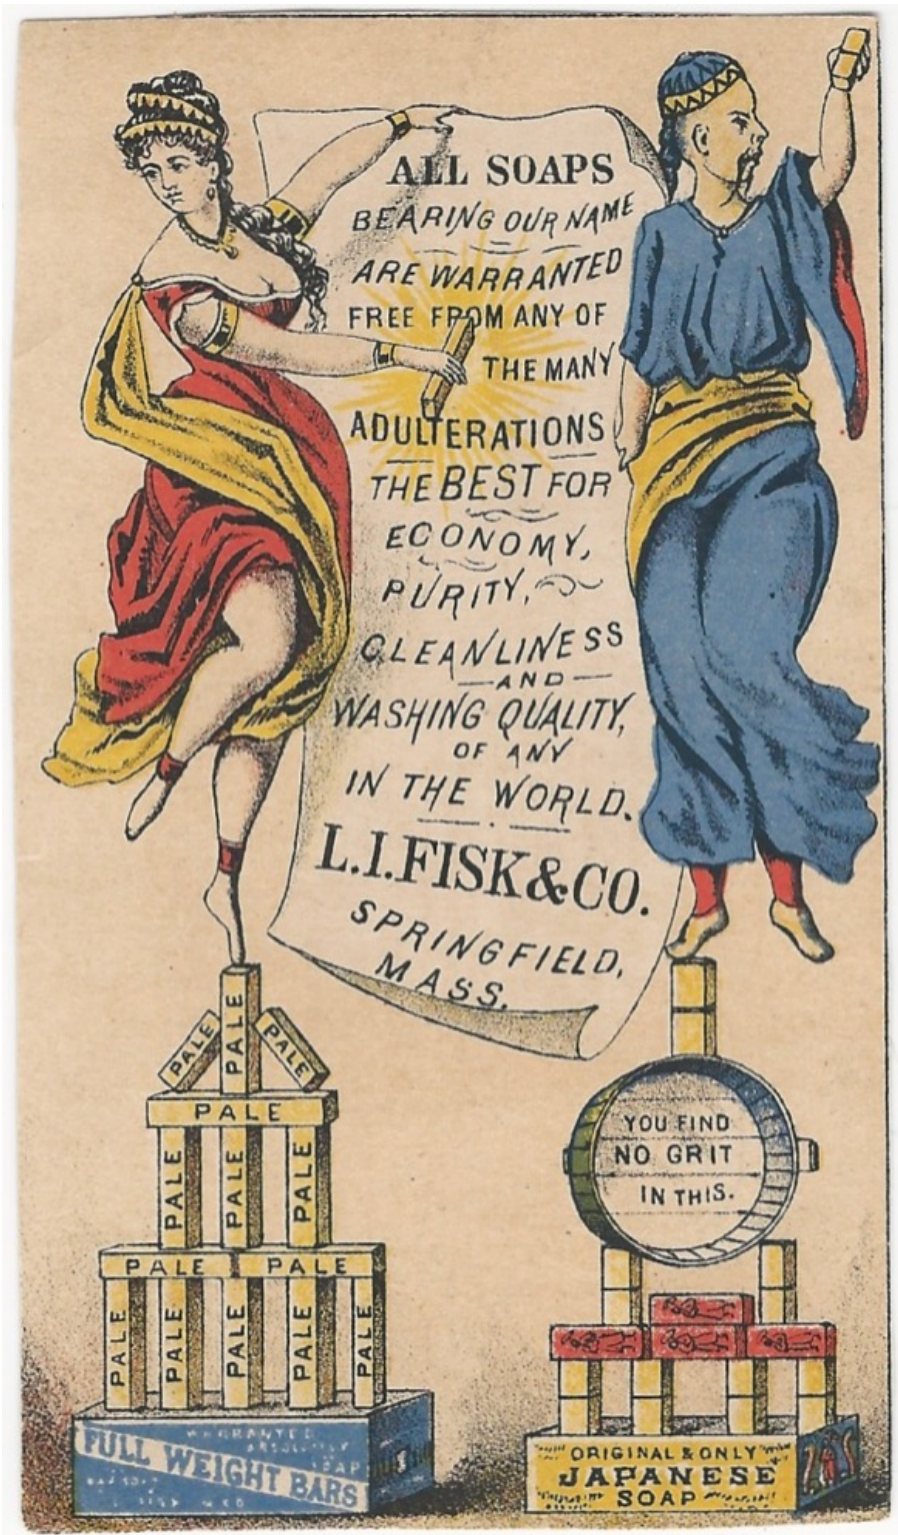 ALL SOAPS
BEARING OUR NAME
ARE WARRANTED
FREE FROM ANY OF
THE MANY
ADULTERATIONS
THE BEST FOR
ECONOMY,
PURITY,
CLEANLINESS
AND
WASHING QUALITY,
OF ANY
IN THE WORLD.
L.I.FISK&CO.
SPRINGFIELD,
MASS.
PALE
PALE
PALE
PALE
PALE
PALE
PALE
PALE PALE
PALE
PALE
PALE
PALE
PALE
WARRANTED
ABSOLUTELY
SOAP
FULL WEIGHT BARS
YOU FIND
NO GRIT
IN THIS.
ORIGINAL & ONLY
JAPANESE
SOAP